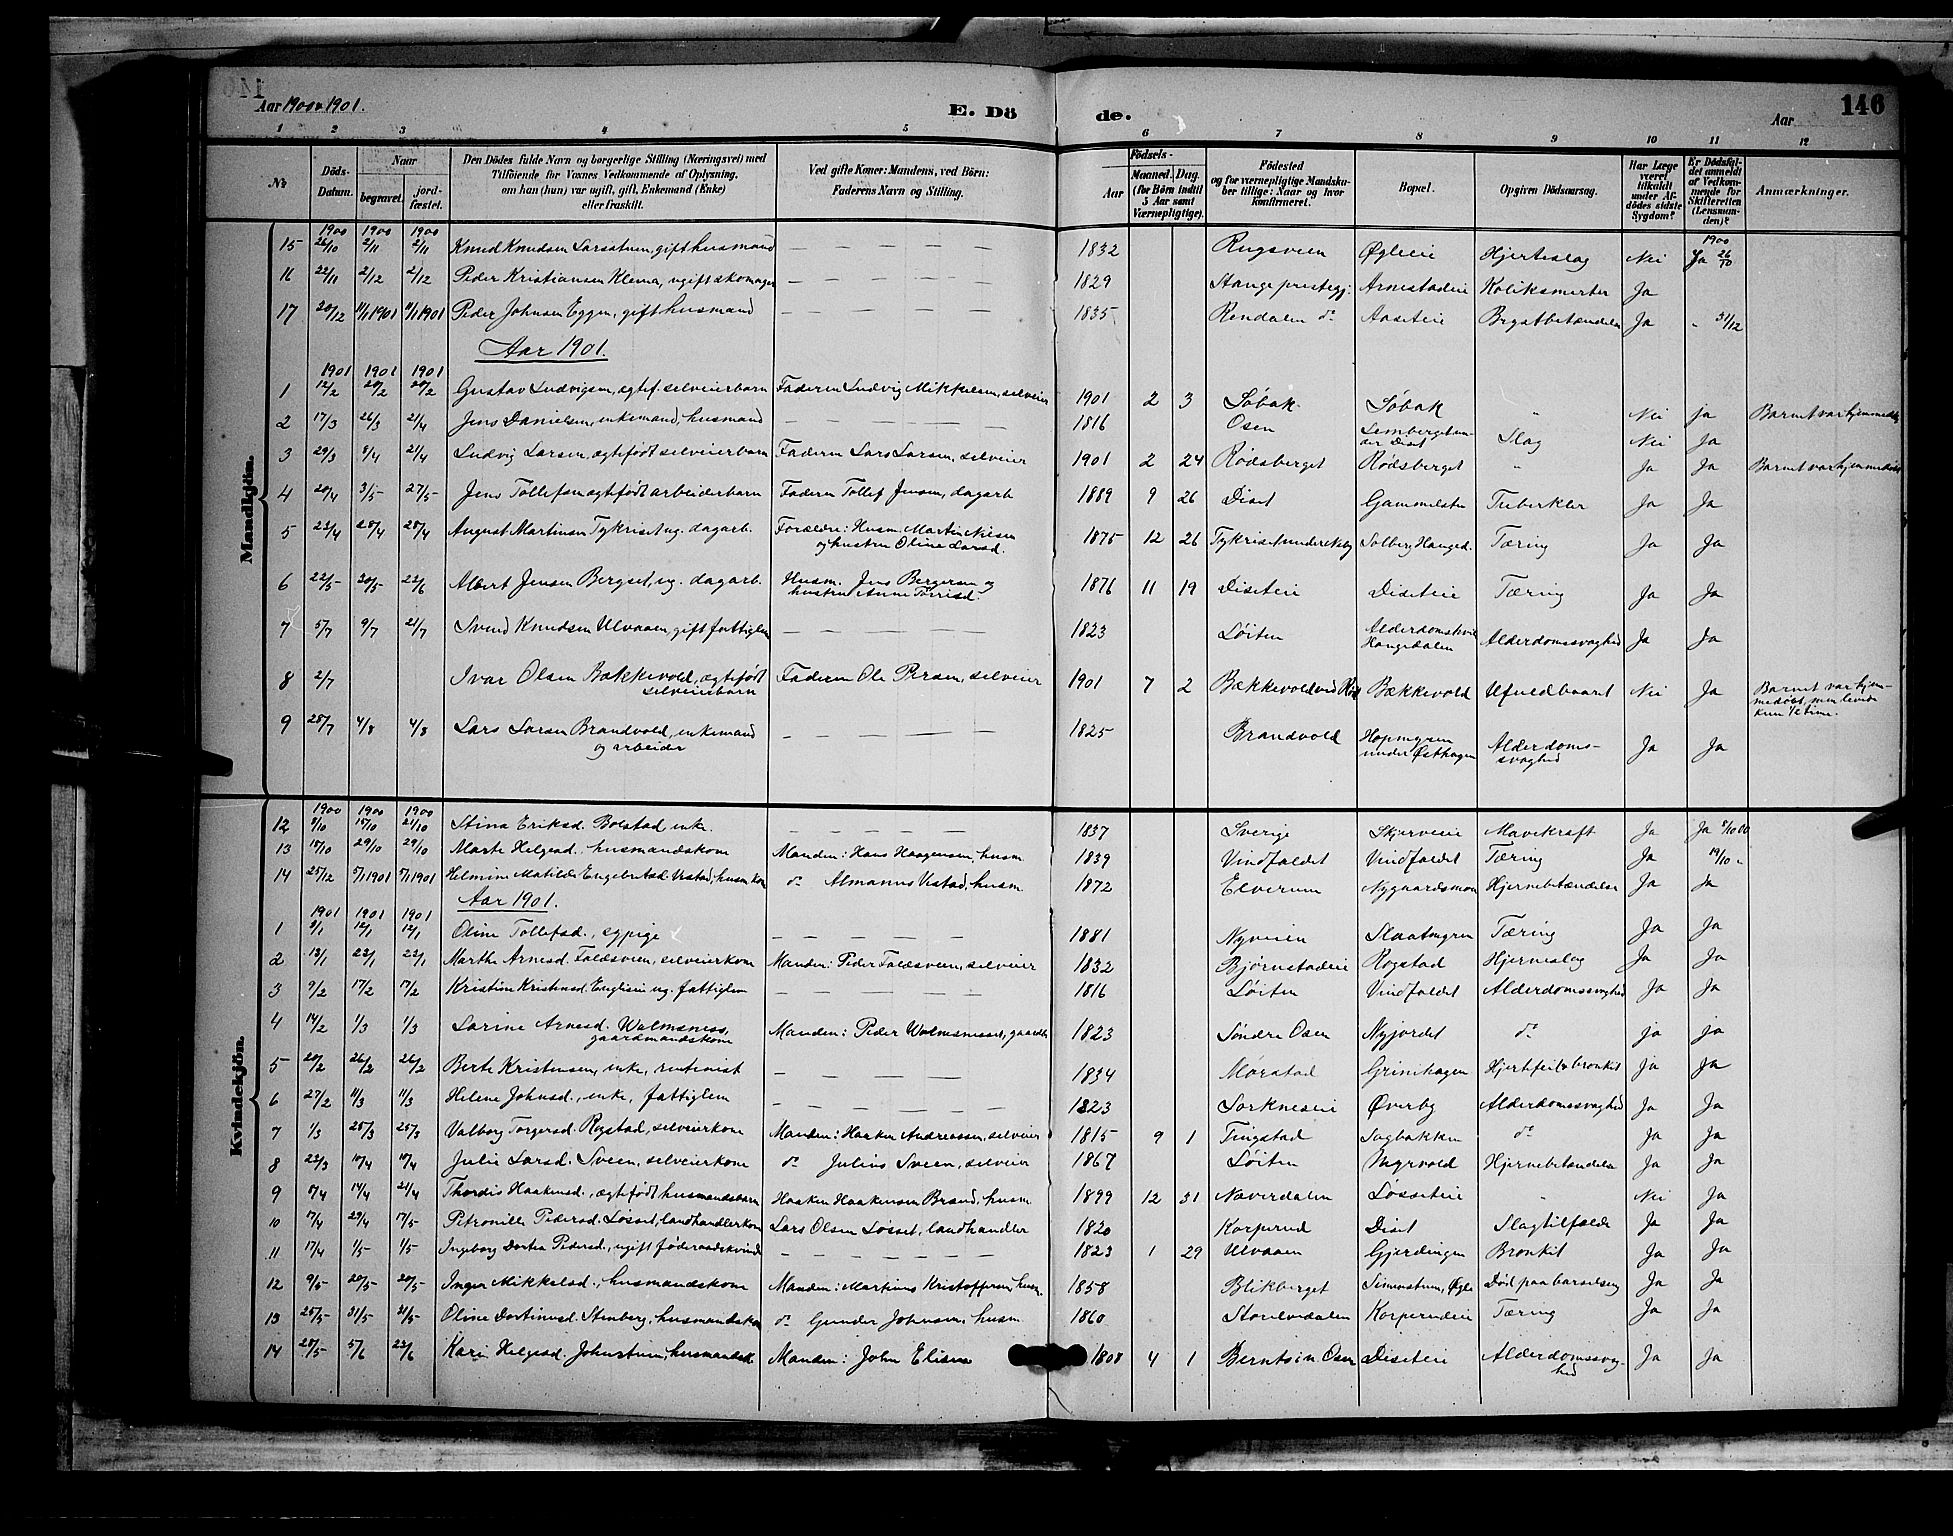 Aar 1900 & 1901.
E. Dö
de.
Aar
146
1 2 3 4 5 6 7 8 9 10 11 12
№ Döds-Datum. Naar begravet. jordfæstet. Den Dödes fulde Navn og borgerlige Stilling (Næringsvei) med Tilföiende for Voxnes Vedkommende af Oplysning, om han (hun) var ugift, gift, Enkemand (Enke) eller fraskilt. Ved gifte Koner: Mandens, ved Börn: Faderens Navn og Stilling. Födsels- Aar Maaned. Dag. (for Börn indtil 5 Aar samt Værnepligtige). Födested og for værnepligtige Mandskaber tillige: Naar og hvor konfirmeret. Bopæl. Opgiven Dödsaarsag. Har Læge været tilkaldt under Afdödes sidste Sygdom? Er Dödsfaldet anmeldt af Vedkommende for Skifteretten (Lensmanden)? Anmærkninger.
Mandkjön.
1900 1900 1900 1900
15 26/10 2/11 2/11 Knud Knudsen Larsstuen, gift husmand — 1832 Rugsveen Øgleeie Hjerteslag Nei Ja 26/10
16 22/11 2/12 2/12 Peder Kristiansen Klema, ugift skomager — 1829 Stange prestegj. Arnestadeie Koliksmerter Ja
17 20/12 11/1 1901 11/1 1901 Peder Johnsen Eggen, gift husmand — 1835 Rendalen do Aaseteie Brystbetændelse Ja " 31/12
Aar 1901.
1901 1901 1901
1 12/2 20/2 20/2 Gustav Ludvigsen, egtef. selveierbarn Faderen Ludvig Mikkelsen, selveier 1901 2 3 Søbak Søbak " Nei ja Barnet var hjemmedøbt
2 17/3 26/3 21/4 Jens Danielsen, enkemand, husmand — 1816 Osen under Diset Slag Nei Ja
3 29/3 8/4 21/4 Ludvig Larsen, ægtefødt selveierbarn Faderen Lars Larsen, selveier 1901 2 24 Rødsberget Rødsberget " Ja Ja Barnet var hjemmedøbt
4 20/4 3/5 27/5 Jens Tollefsen ægtefødt arbeiderbarn Faderen Tollef Jensen, dagarb. 1889 9 26 Diset Gammelsten Tuberkler Ja Ja
5 23/4 28/4 28/4 August Martinsen Tykriset ug. dagarb. Forældre: Husm. Martin Nilsen og hustru Oline Larsd. 1875 12 26 Tykriset under Neby Solberg Hanged. Tæring Ja Ja
6 22/5 30/5 22/6 Albert Jensen Bergset, ug. dagarb. Husm. Jens Bergersen og hustru Anne Torrisd. 1876 11 19 Diseteie Diseteie Tæring Ja Ja
7 5/7 9/7 21/7 Svend Knudsen Ulvaaen, gift fattiglem — 1823 Løiten Alderdomshvile Haugedalen Alderdomssvaghed Ja Ja
8 2/7 Ivar Olsen Bækkevold, ægtefødt selveierbarn Faderen Ole Persen, selveier 1901 7 2 Bækkevold Bækkevold Ufuldbaaret Nei Ja Barnet var hjemmedøbt, men levede kun 1/2 time.
9 28/7 4/8 4/8 Lars Larsen Brandvold, enkemand og arbeider — 1825 Brandvold Hopmyren under Østhagen Alderdomssvaghed Ja Ja
Kvindekjön.
1900 1900 1900
12 8/10 15/10 21/10 Stina Eriksd. Bolstad enke. — 1837 Sverige Skjerveeie Mavekraft Ja Ja 8/10 00
13 18/10 29/10 29/10 Marte Helgesd., husmandskone Manden: Hans Haagensen, husm. 1839 Vindfaldet Vindfaldet Tæring Ja 19/10 "
14 25/12 5/1 1901 5/1 1901 Helmine Matilde Engebretsd. Vestad, husm. kone do Almanus Vestad, husm. 1872 Elverum Nygaardsmoen Hjernebetændelse Ja Ja
Aar 1901.
1901 1901 1901
1 8/1 12/1 12/1 Oline Tollefsd., sypige — 1881 Nyveien Slaatmyren Tæring Ja Ja
2 13/1 23/1 23/1 Marthe Arnesd. Faldsveen, selveierkone Manden: Peder Faldsveen, selveier 1832 Bjørnstadeie Rogstad Hjerneslag Ja Ja
3 9/2 17/2 17/2 Kristine Kristensd. Englieie ug. fattiglem — 1816 Løiten Vindfaldet Alderdomssvaghed Ja Ja
4 14/2 1/3 1/3 Karine Arnesd. Wolmsness, gaardmandskone Manden: Peder Wolmsnesset, gaardbr. 1823 Søndre Osen Nyjordet do ja ja
5 20/2 26/2 26/2 Berte Kristensen, enke, rentenist — 1834 Mørstad Grinehagen Hjertefeil & bronkit ja Ja
6 27/2 11/3 11/3 Helene Johnsd., enke, fattiglem — 1823 Sorkneseie Øverby Alderdomssvaghed Ja Ja
7 1/3 25/3 25/3 Valborg Torgersd. Rogstad, selveierkone Manden: Haaken Andreassen, selveier 1815 9 1 Tingstad Sagbakken do Ja Ja
8 23/3 10/4 10/4 Julie Larsd. Sveen, selveierkone do Julius Sveen, selveier 1867 Løiten Myrvold Hjernebetændelse Ja Ja
9 8/4 14/4 21/4 Thordis Haakensd., ægtefødt husmandsbarn Haaken Haakensen Brænd, husm. 1899 12 31 Næverdalen Løsseteie " Nei Ja
10 17/4 29/4 17/5 Petronille Pedersd. Løsset, landhandlerkone Lars Olsen Løsset, landhandler 1820 Korperud Diset Slagtilfælde Ja Ja
11 17/4 1/5 1/5 Ingeborg Dortea Pedersd., ugift føderaadskvinde — 1823 1 29 Ulvaaen Gjerdingen Bronkit Ja Ja
12 9/5 20/5 20/5 Inger Mikkelsd., husmandskone Manden: Martinus Kristoffersen, husm. 1858 Blikberget Simenstuen, Øgle Død paa barselseng Ja Ja
13 25/5 31/5 31/5 Oline Dortinusd. Stenberg, husmandskone do Gunder Johnsen, husm. 1860 Storelvdalen Korperudeie Tæring Ja Ja
14 28/5 5/6 23/6 Kari Helgesd. Johnstuen, husmandsk. Manden: John Elisen 1808 4 1 Berntsin Osen Diseteie Alderdomssvaghed Ja Ja